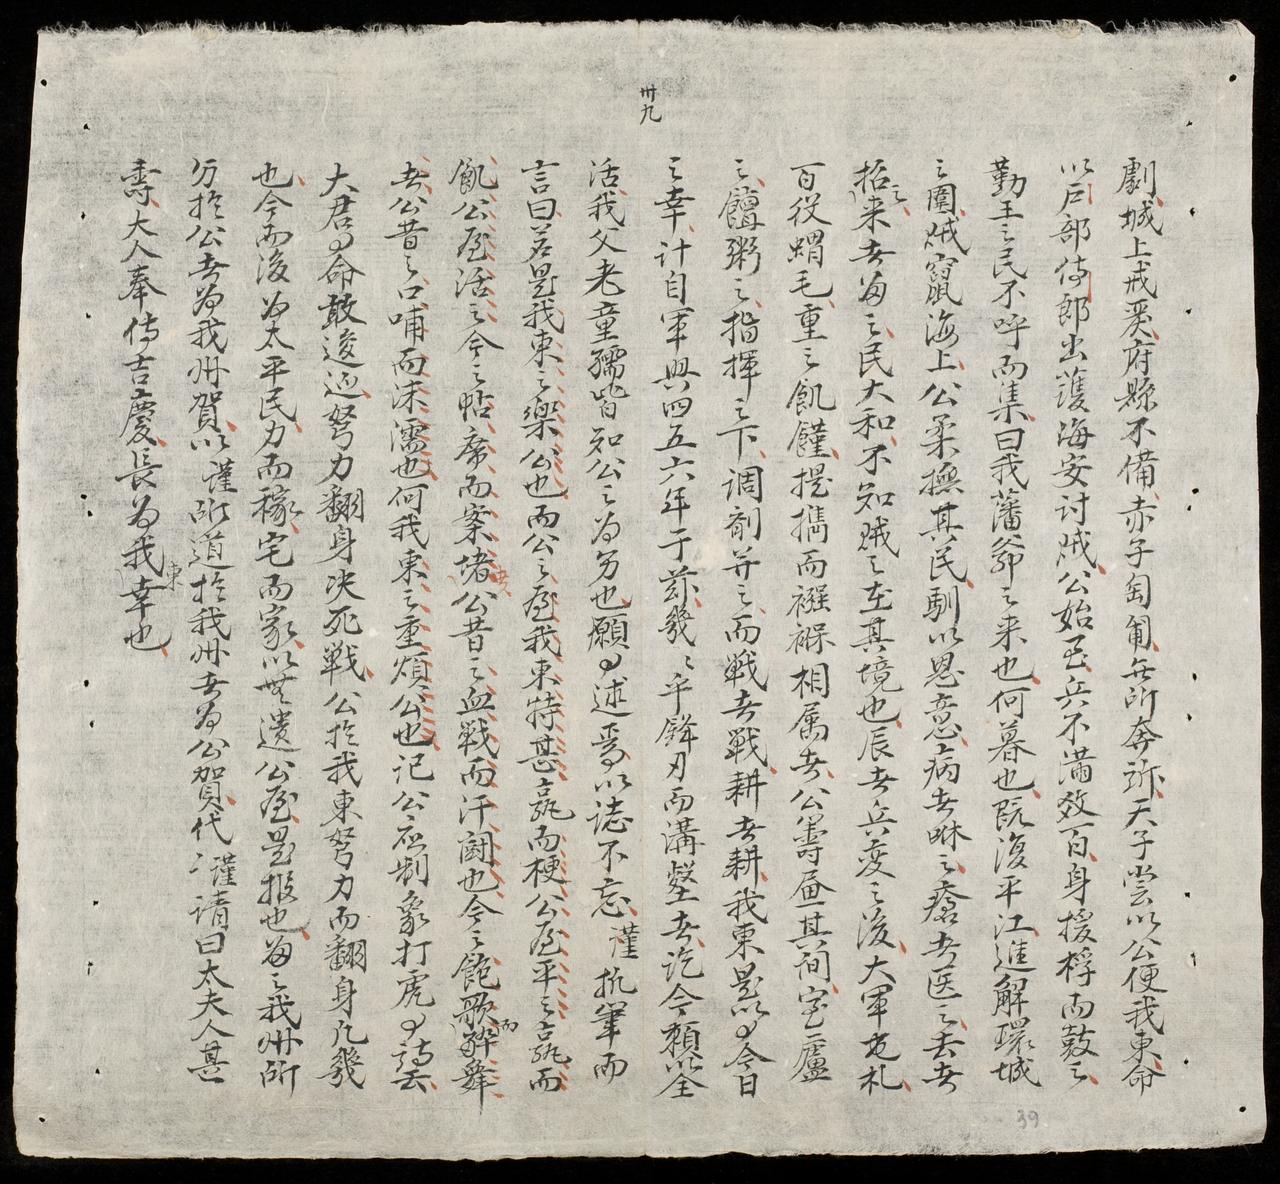 卅九
劇城上戒嚴府縣不備赤子匍匐無所奔訴天子嘗以公便我東命
以戶部侍郎出護海安討賊公始至兵不滿数百身援桴而鼓之
勤王之民不呼而集曰我藩爺之来也何暮也既復平江進解環城
之圍賊竄海上公柔撫其民馴以恩意病者咻之瘡者医之去者
招之来者為之民大和不知賊之在其境也辰者兵変之後大軍老札
百役蝟毛重之飢饉提攜而襁褓相属者公籌畫其间室廬
之饘粥之指揮之下調劑并之而戦者戦耕者耕我東是以有今日
之幸計自軍興四五六年于兹幾之乎鋒刃而溝壑者迄今頼以全
活我父老童孺皆知公之為勞也願有述焉以誌不忘謹抗筆而
言曰若是我東之楽公也而公之庭我東特甚羸而梗公庭平之羸而
飢公庭活之今之帖席而案堵者公昔之血戦而汗闘也今之飽歌而醉舞
者公昔之口哺而沫濡也何我東之重煩公也记公応制象打虎有詩云
大君有命敢逡巡努力翻身决死戦公於我東努力而翻身凡幾
也今而後为太平民力而稼宅而家以世遺公庭是报也為之我州所
分於公者为我州賀以謹所道於我州者为公賀代謹請曰太夫人甚
壽大人奉侍吉慶長为我東幸也
39